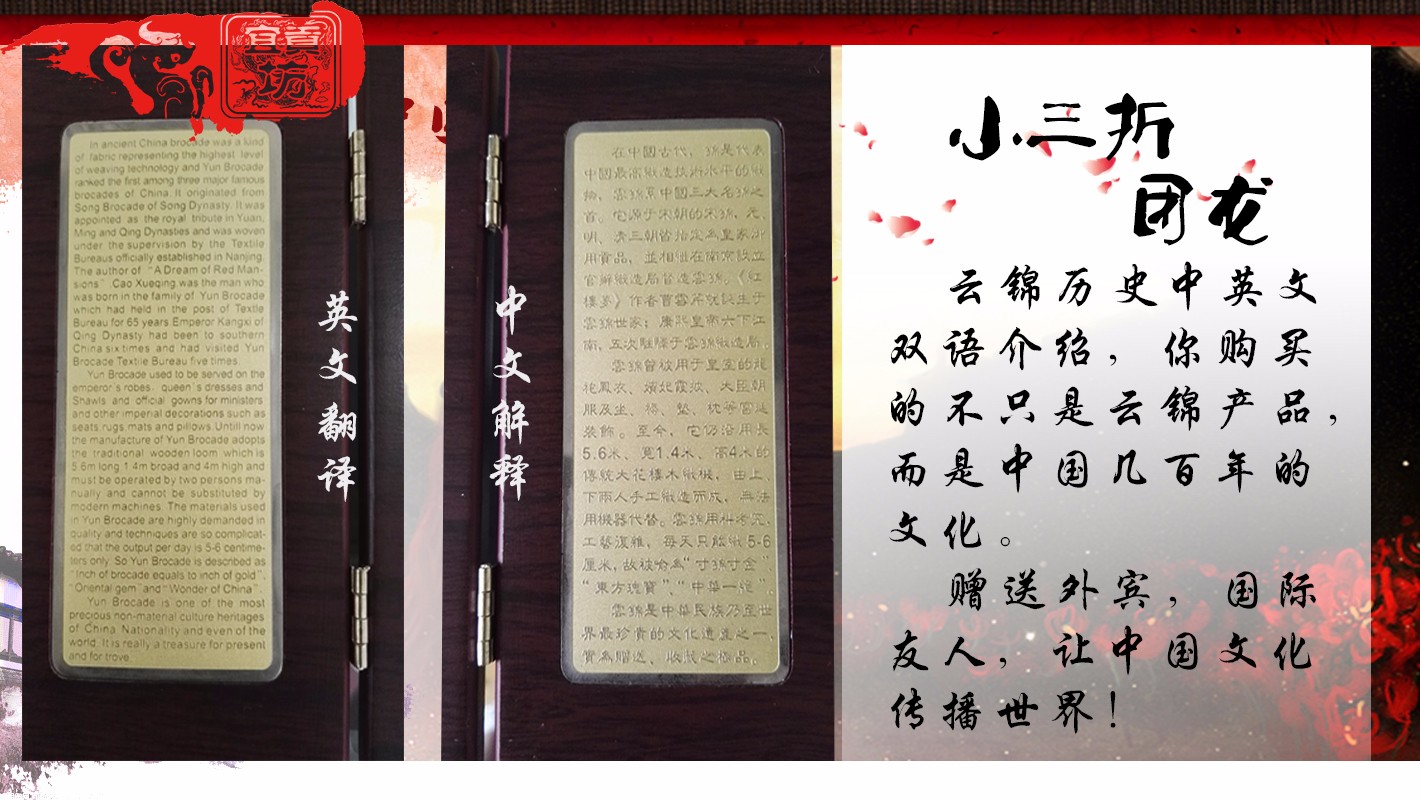 宜真坊
In ancient China brocade was a kind
of fabric representing the highest level
of weaving technology and Yun Brocade
ranked the first among three major famous
brocades of China. It originated from
Song Brocade of Song Dynasty. It was
appointed as the royal tribute in Yuan,
Ming and Qing Dynasties and was woven
under the supervision by the Textile
Bureaus officially established in Nanjing.
The author of "A Dream of Red Man-
sions" Cao Xueqing was the man who
was born in the family of Yun Brocade
which had held in the post of Textle
Bureau for 65 years.Emperor Kangxi of
Qing Dynasty had been to southern
China six times and had visited Yun
Brocade Textile Bureau five times.
Yun Brocade used to be served on the
emperor's robes, queen's dresses and
Shawls and official gowns for ministers
and other imperial decorations such as
seats,rugs,mats and pillows.Untill now
the manufacture of Yun Brocade adopts
the traditional wooden loom which is
5.6m long 1.4m broad and 4m high and
must be operated by two persons ma-
nually and cannot be substituted by
modern machines. The materials used
in Yun Brocade are highly demanded in
quality and techniques are so complicat-
ed that the output per day is 5-6 centime-
ters only. So Yun Brocade is described as
"Inch of brocade equals to inch of gold",
"Oriental gem" and "Wonder of China".
Yun Brocade is one of the most
precious non-material culture heritages
of China Nationality and even of the
world. It is really a treasure for present
and for trove.
英文翻译
中文解释
在中國古代，錦是代表
中國最高織造技術水平的織
物，雲錦系中國三大名錦之
首。它源于宋朝的宋錦，元、
明、清三朝皆指定為皇家御
用貢品，並相繼在南京設立
官辦織造局督造雲錦。《紅
樓夢》作者曹雪芹就誕生于
雲錦世家；康熙皇帝六下江
南，五次駐驆于雲錦織造局。
雲錦曾被用于皇室的龍
袍鳳衣、嬪妃霞帔、大臣朝
服及坐、椅、墊、枕等宮廷
裝飾。至今，它仍沿用長
5.6米、寬1.4米、高4米的
傳統大花樓木織機，由上、
下兩人手工織造而成，無法
用機器代替。雲錦用料考究，
工藝復雜，每天只能織5-6
厘米，故被喻為"寸錦寸金"
"東方瑰寶""中華一絕"。
雲錦是中華民族乃至世
界最珍貴的文化遺產之一，
實為贈送、收藏之極品。
小三折
团龙
云锦历史中英文
双语介绍，你购买
的不只是云锦产品，
而是中国几百年的
文化。
赠送外宾，国际
友人，让中国文化
传播世界！